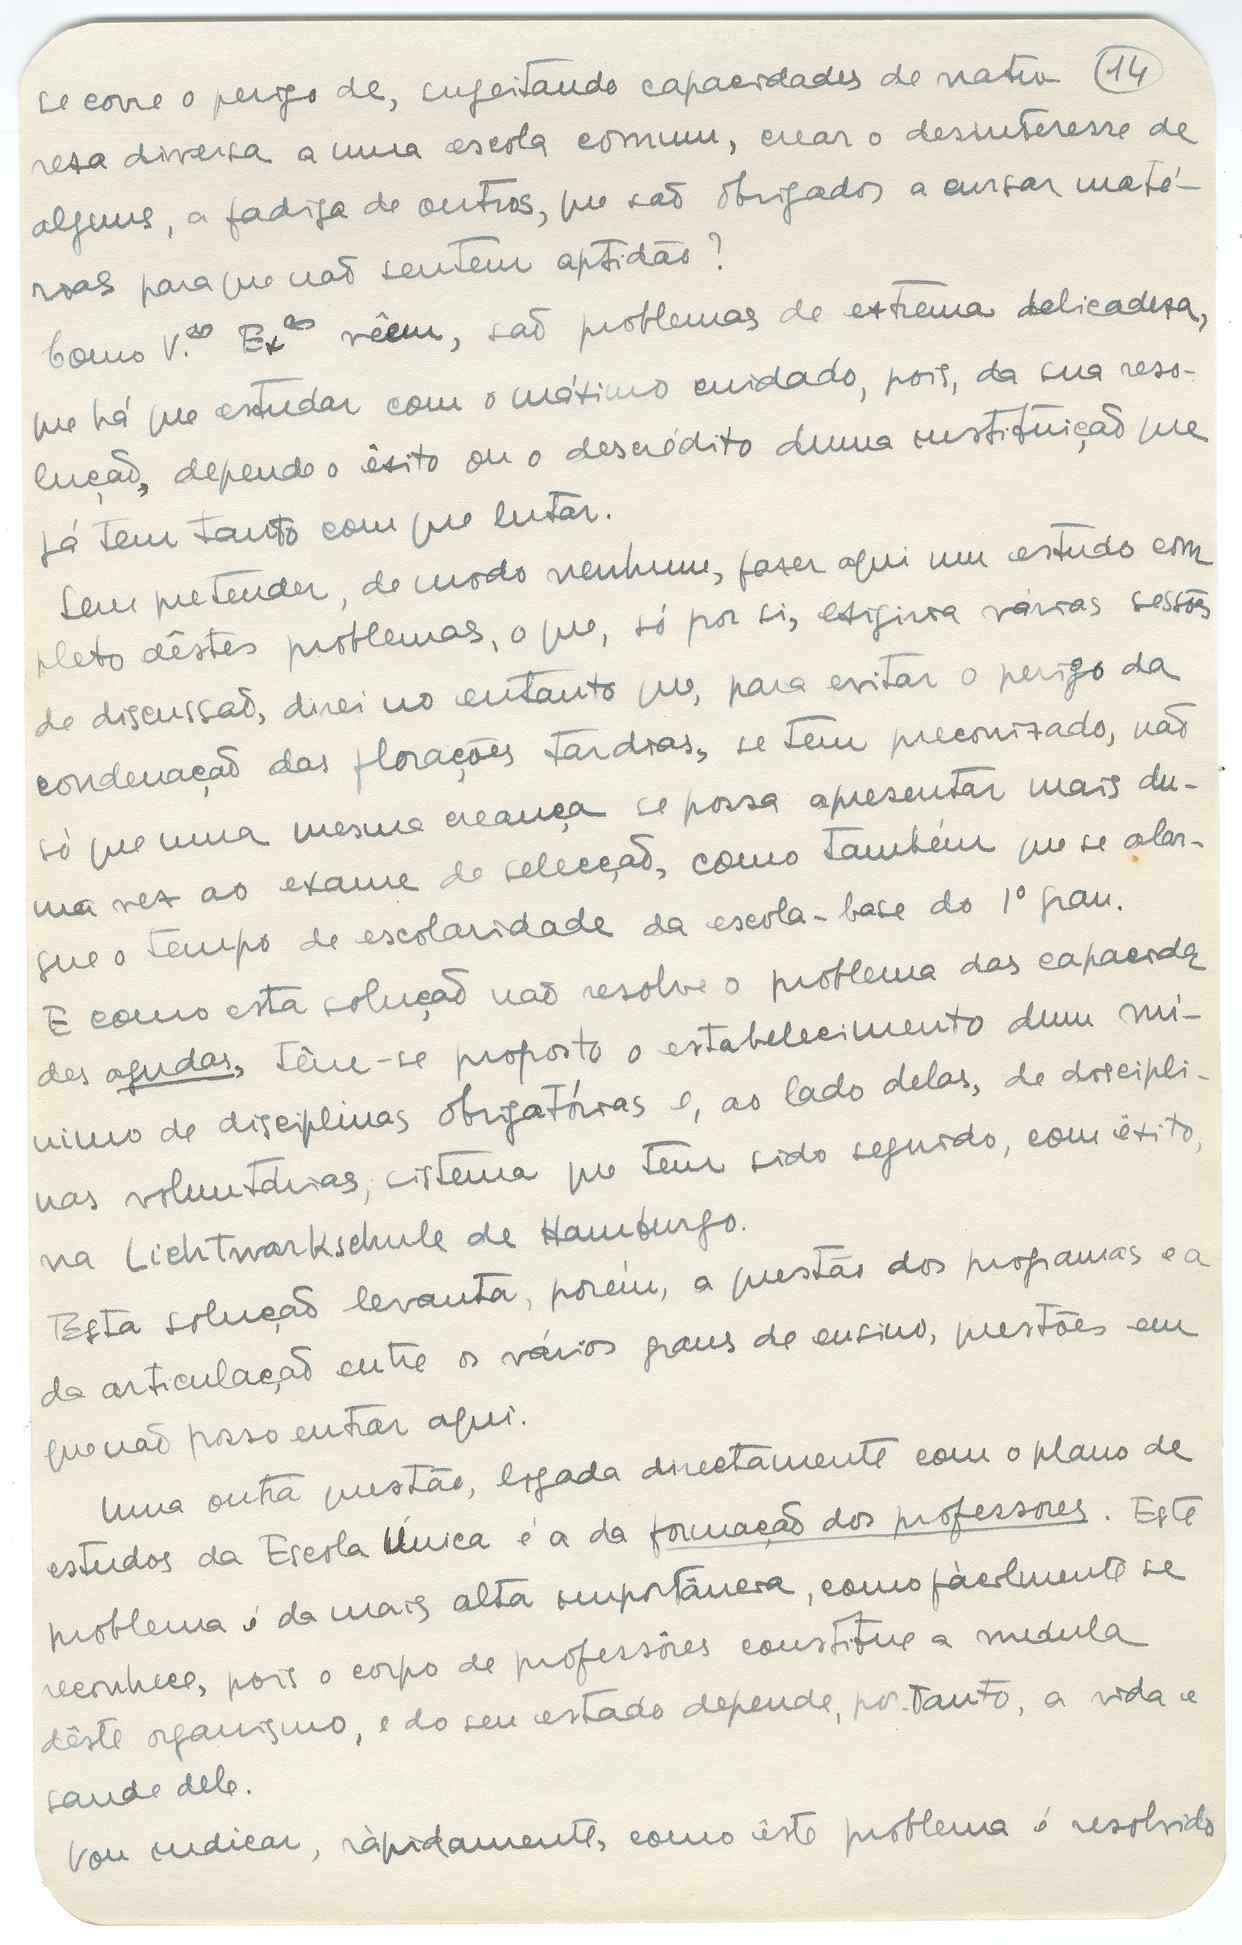 se corre o perigo de, sugeitando capacidades de natu- (14)
reza diversa a uma escola comum, crear o desinteresse de
alguns, a fadiga de outros, que saõ obrigados a cursar maté-
rias para que naõ sentem aptidão?
Como V.as Ex.as vêem, saõ problemas de extrema delicadeza,
que há que estudar com o máximo cuidado, pois, da sua reso-
luçaõ, depende o êxito ou o descrédito duma instituiçaõ que
já tem tanto com que lutar.
Sem pretender, de modo nenhum, fazer aqui um estudo com
pleto dêstes problemas, o que, só por si, exigiria várias sessões
de discussaõ, direi no entanto que, para evitar o perigo da
condenaçaõ das florações tardias, se tem preconizado, naõ
só que uma mesma creança se possa apresentar mais du-
ma vez ao exame de selecçaõ, como também que se alar-
gue o tempo de escolaridade da escola-base do 1º grau.
E como esta soluçaõ naõ resolve o problema das capacida
des agudas, têm-se proposto o estabelecimento dum mí-
nimo de disciplinas obrigatórias e, ao lado delas, de discipli-
nas voluntárias, sistema que tem sido seguido, com êxito,
na Lichtwarkschule de Hamburgo.
Esta soluçaõ levanta, porém, a questão dos programas e a
da articulaçaõ entre os vários graus de ensino, questões em
que naõ posso entrar aqui.
Uma outra questão, ligada directamente com o plano de
estudos da Escola Única é a da formaçaõ dos professores. Este
problema é da mais alta importância, como fàcilmente se
reconhece, pois o corpo de professôres constitue a medula
dêste organismo, e do seu estado depende, portanto, a vida e
saude dele.
Vou indicar, ràpidamente, como êste problema é resolvido